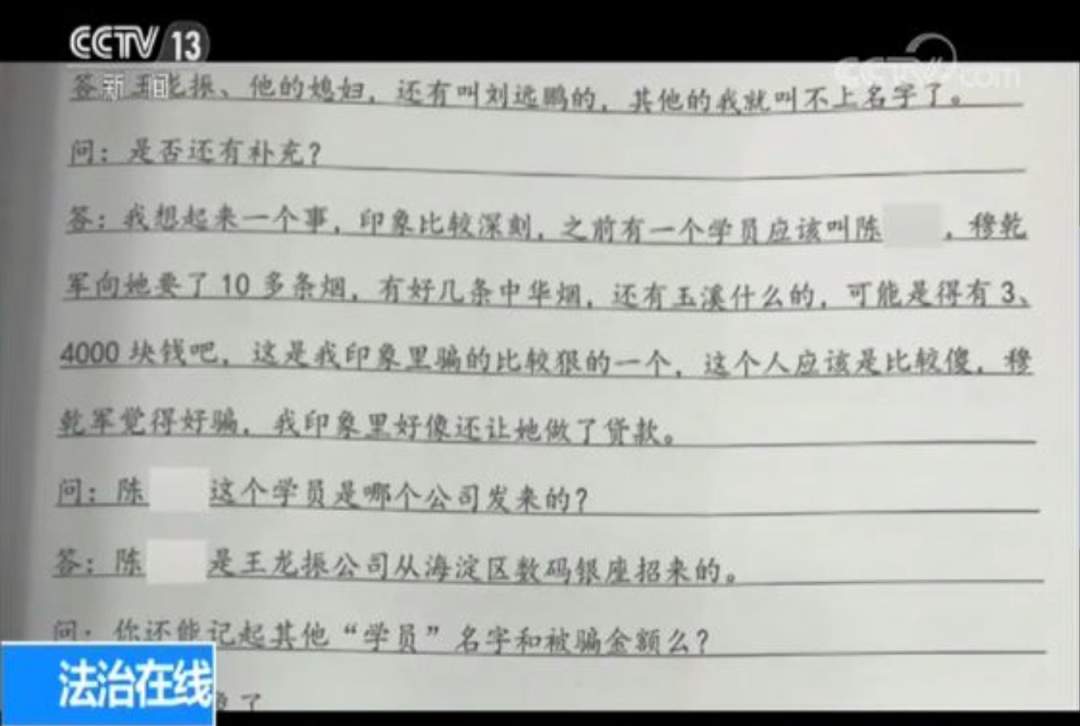 CCTV 13
新闻
CCTV.com
答：王龙振、他的媳妇，还有叫刘远鹏的，其他的我就叫不上名字了。
问：是否还有补充？
答：我想起来一个事，印象比较深刻，之前有一个学员应该叫陈，穆乾
军向她要了 10 多条烟，有好几条中华烟，还有玉溪什么的，可能是得有 3、
4000 块钱吧，这是我印象里骗的比较狠的一个，这个人应该是比较傻，穆
乾军觉得好骗，我印象里好像还让她做了贷款。
问：陈这个学员是哪个公司发来的？
答：陈是王龙振公司从海淀区数码银座招来的。
问：你还能记起其他“学员”名字和被骗金额么？
法治在线
了